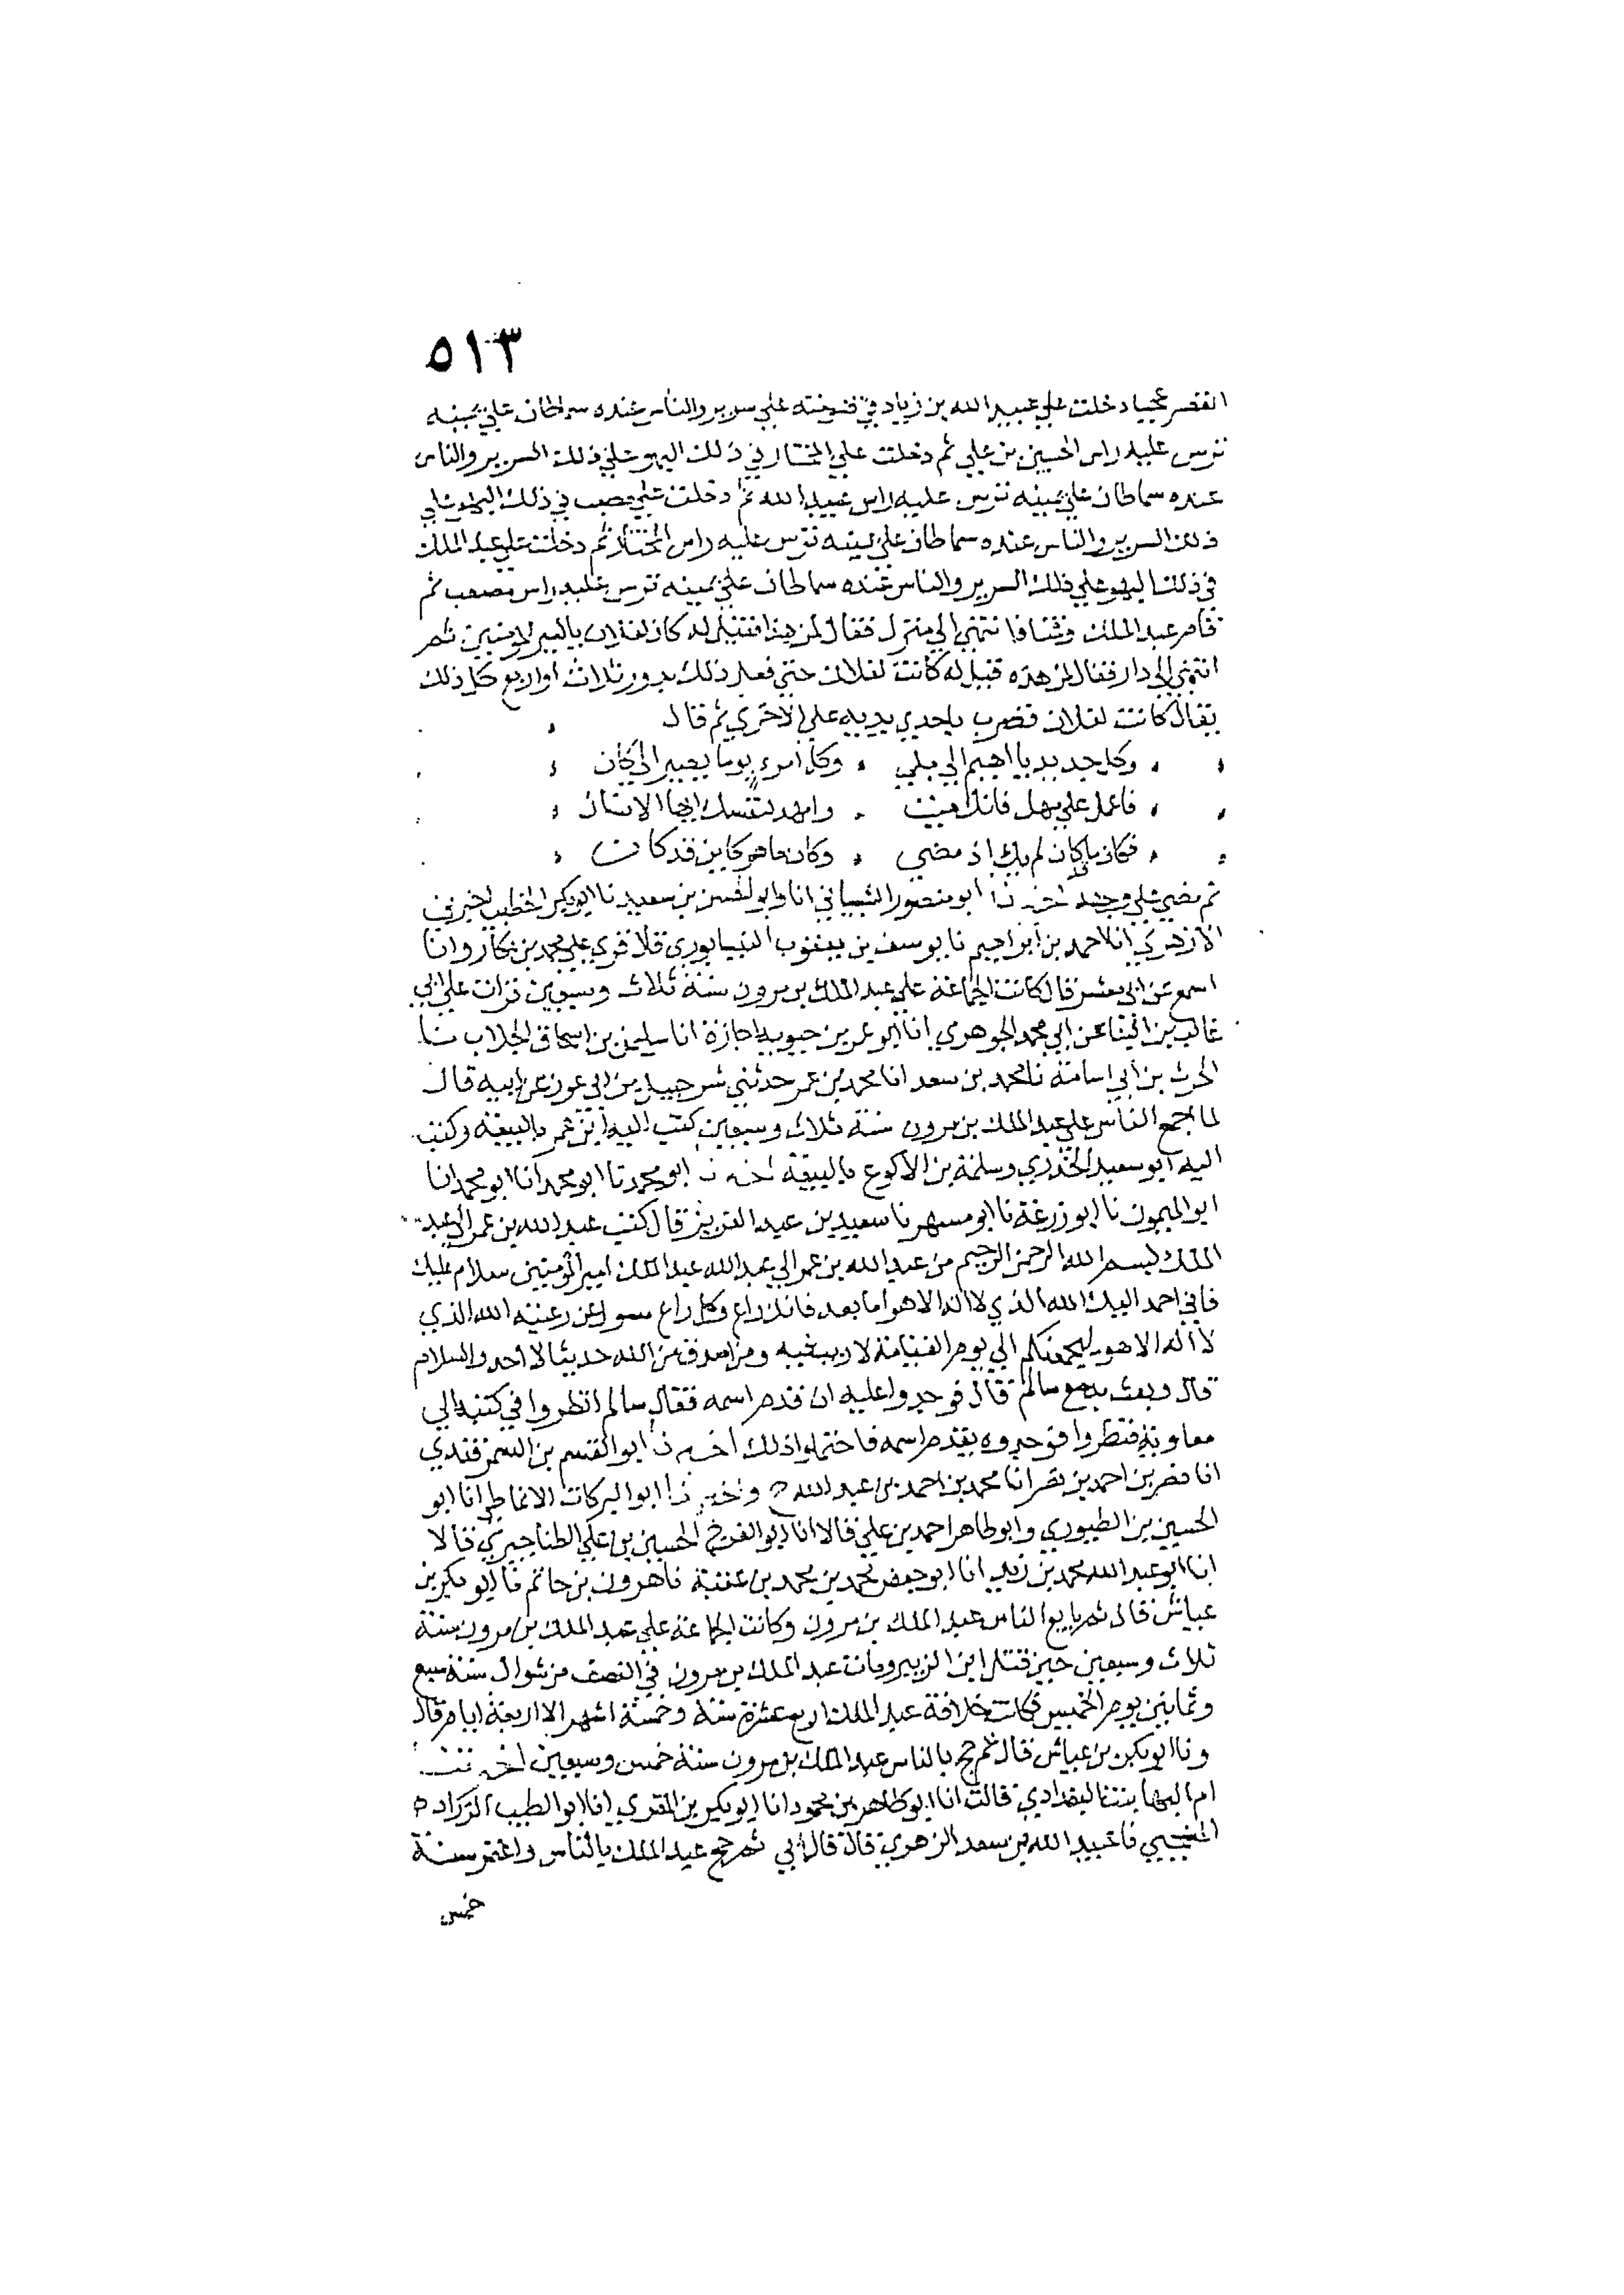 ٥١٣
القصر عجبا دخلت علي عبيد الله بن زياد في علي سرير والناس عنده سماطان علي يمينه
ترس عليه راس الحسين بن علي ثم دخلت علي المختار في ذلك البهو علي ذلك السرير والناس
عنده سماطان علي يمينه ترس عليه راس عبيد الله ثم دخلت علي مصعب في ذلك البهو علي
ذلك السرير والناس عنده سماطان علي يمينه ترس عليه راس المختار ثم دخلت علي عبد الملك
في ذلك البهو علي ذلك السرير والناس عنده سماطان علي يمينه ترس عليه راس مصعب ثم
قام عبد الملك فانتهي الي منزل فقال لمن هذا فقيل له كان لفلان يا امير المومنين ثم
انتهي الي دار فقال لمن هذه فقيل له كانت لفلان حتي فعل ذلك بدور ثلاث او اربع كل ذلك
يقال كانت لفلان فضرب باحدي يديه علي الاخري ثم قال
وكل جديد يا اميم الي بلي وكل امرء يوما يصير الي كان
فاعمل علي مهل فانك ميت وامهد لنفسك ايها الانسان
فكان ما كان لم يك اذ مضي وكان ما هو كاين قد كان
ثم مضي علي وجهه اخبرنا ابو منصور الشيباني انا وابو الحسن بن سعيد نا ابو بكر الخطيب اخبرني
الازهري انا احمد بن ابراهيم نا يوسف بن يعقوب النيسابوري قال قري علي محمد بن بكار وانا
اسمع عن ابي معشر قال كانت الجماعة علي عبد الملك بن مرون سنة ثلاث وسبعين قرات علي ابي
غالب بن البنا عن ابي محمد الجوهري انا ابو عمر بن حيويه اجازة انا سليمن بن اسحاق الجلاب نا
الحرث بن ابي اسامة نا محمد بن سعد انا محمد بن عمر حدثني شرحبيل بن ابي عون عن ابيه قال
لما اجمع الناس علي عبد الملك بن مرون سنة ثلاث وسبعين كتب اليه ابن عمر بالبيعة وكتب
اليه ابو سعيد الخدري وسلمة بن الاكوع بالبيعة اخبرنا ابو محمد نا ابو محمد انا ابو محمد انا
ابو الميمون نا ابو زرعة نا ابو مسهر نا سعيد بن عبد العزيز قال كتب عبد الله بن عمر الي عبد
الملك بسم الله الرحمن الرحيم من عبد الله بن عمر الي عبد الله عبد الملك امير المومنين سلام عليك
فاني احمد اليك الله الذي لا اله الا هو اما بعد فانك راع وكل راع مسول عن رعيته الله الذي
لا اله الا هو ليجمعنكم الي يوم القيامة لا ريب فيه ومن اصدق من الله حديثا لا احد والسلام
قال وبعث به مع سالم قال فوجدوا عليه ان قدم اسمه فقال سالم انظروا في كتبه الي
معاوية فنظروا فوجدوه يقدم اسمه فاحتملوا ذلك اخبرنا ابو القسم بن السمرقندي
انا نصر بن احمد بن نصر انا محمد بن احمد بن عبد الله ح واخبرنا ابو البركات الانماطي انا ابو
الحسين بن الطيوري وابو طاهر احمد بن علي قالا انا ابو الفرج الحسين بن علي الطناجيري قالا
انا ابو عبد الله محمد بن زيد انا ابو جعفر محمد بن محمد بن عقبة نا هرون بن حاتم نا ابو بكر بن
عياش قال ثم بايع الناس عبد الملك بن مرون وكانت الجماعة علي عبد الملك بن مرون سنة
ثلاث وسبعين حين قتل ابن الزبير ومات عبد الملك بن مرون في النصف من شوال سنة سبع
وثمانين يوم الخميس فكانت خلافة عبد الملك اربع عشرة سنة وخمسة اشهر الا اربعة ايام قال
ونا ابو بكر بن عياش قال ثم حج بالناس عبد الملك بن مرون سنة خمس وسبعين اخبرتنا
ام البها بنت البغدادي قالت انا ابو طاهر بن محمود انا ابو بكر بن المقري انا ابو الطيب الزراد
المنبجي نا عبيد الله بن سعد الزهري قال قال ابي ثم حج عبد الملك بالناس واعتمر سنة
خمس